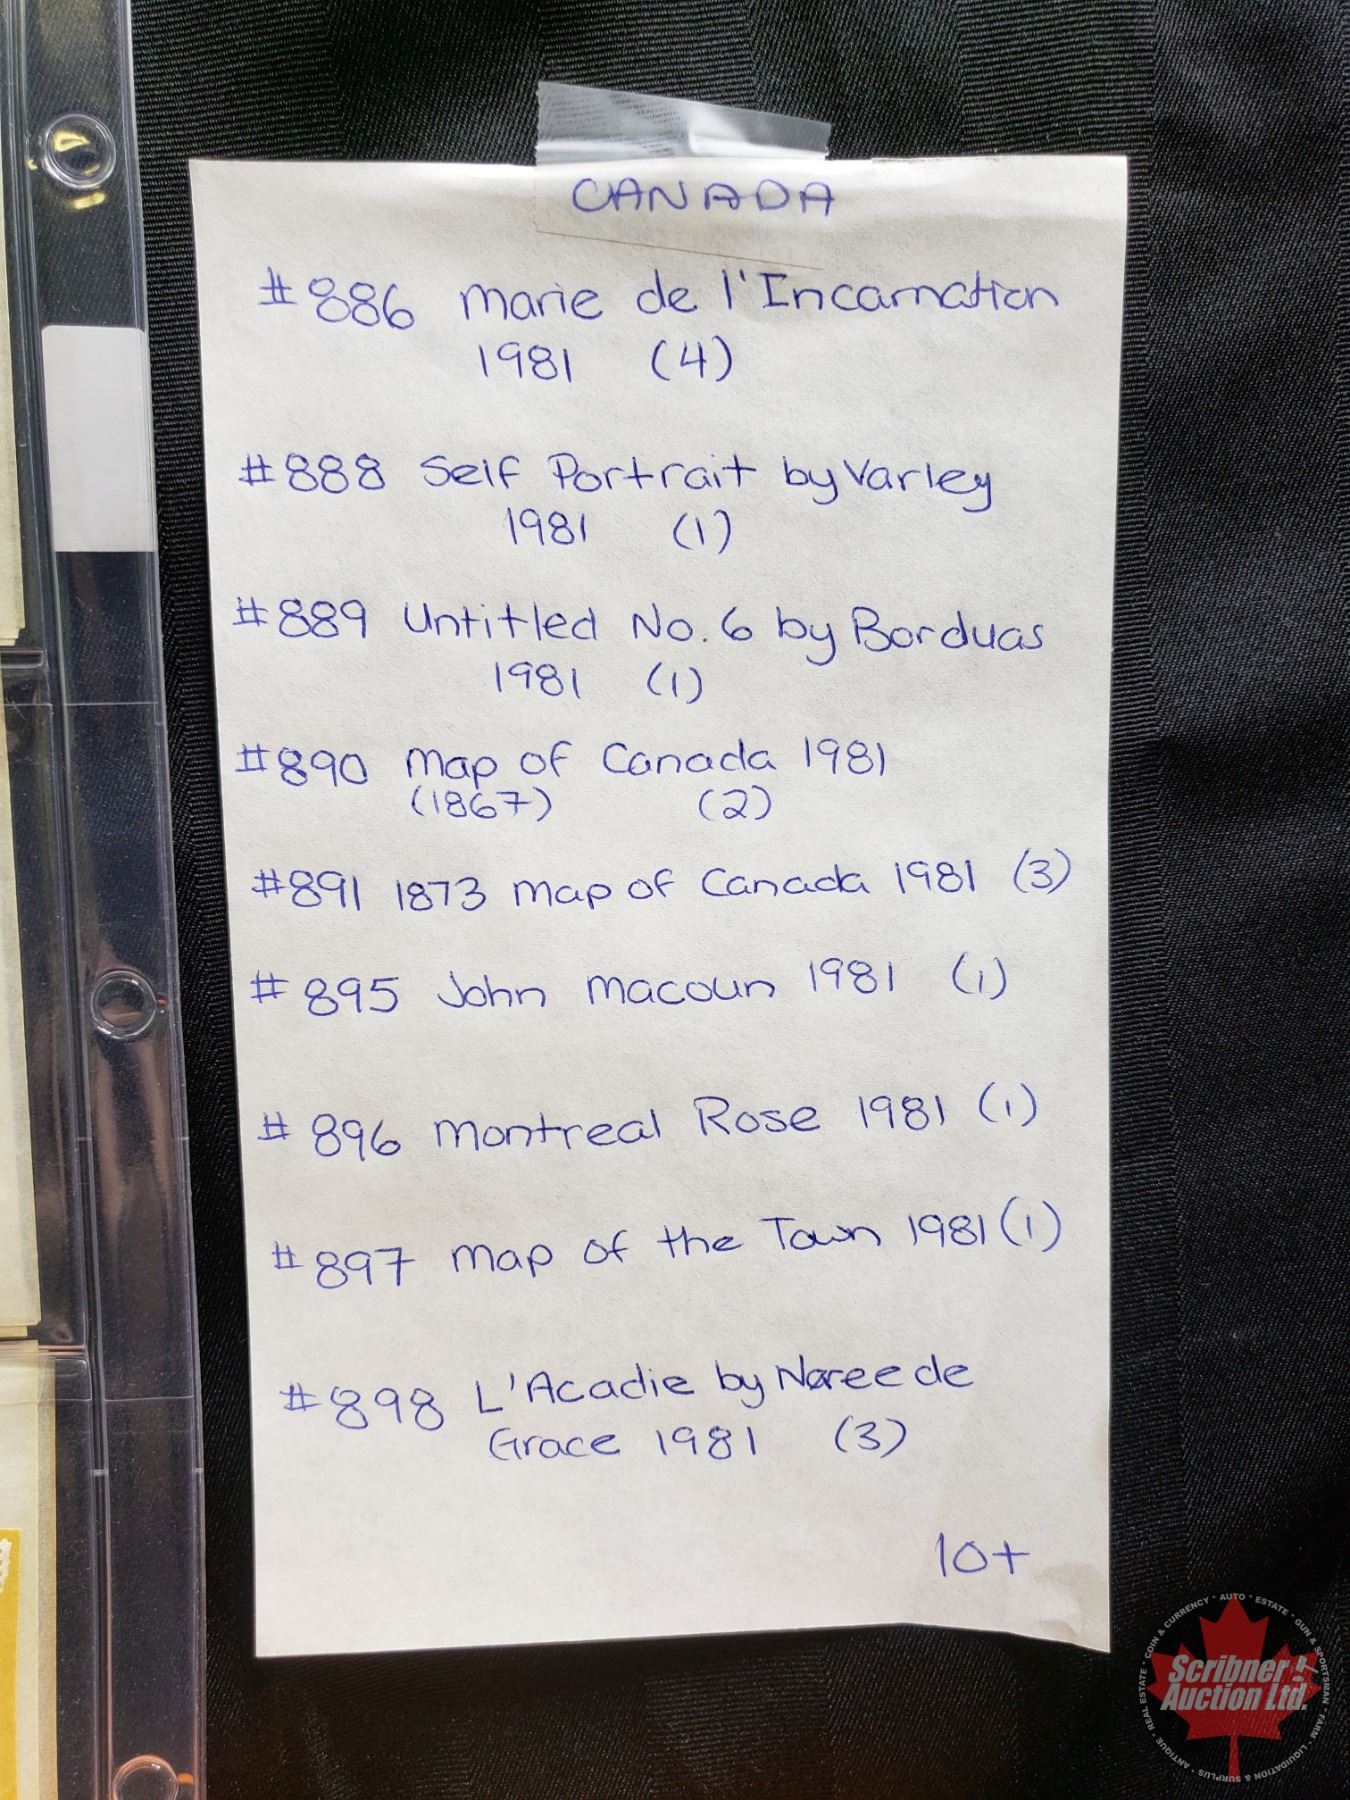 CANADA
#886 Marie de l'Incarnation
1981 (4)
#888 Self Portrait by Varley
1981 (1)
#889 Untitled No. 6 by Borduas
1981 (1)
#890 Map of Canada 1981
(1867) (2)
#891 1873 Map of Canada 1981 (3)
#895 John Macoun 1981 (1)
#896 Montreal Rose 1981 (1)
#897 Map of the Town 1981 (1)
#898 L'Acadie by Neree de
Grace 1981 (3)
10+
COIN & CURRENCY · AUTO · ESTATE · GUN & SPORTSMAN · FARM · LIQUIDATION & SURPLUS · ANTIQUE · REAL ESTATE ·
Scribner
Auction Ltd.